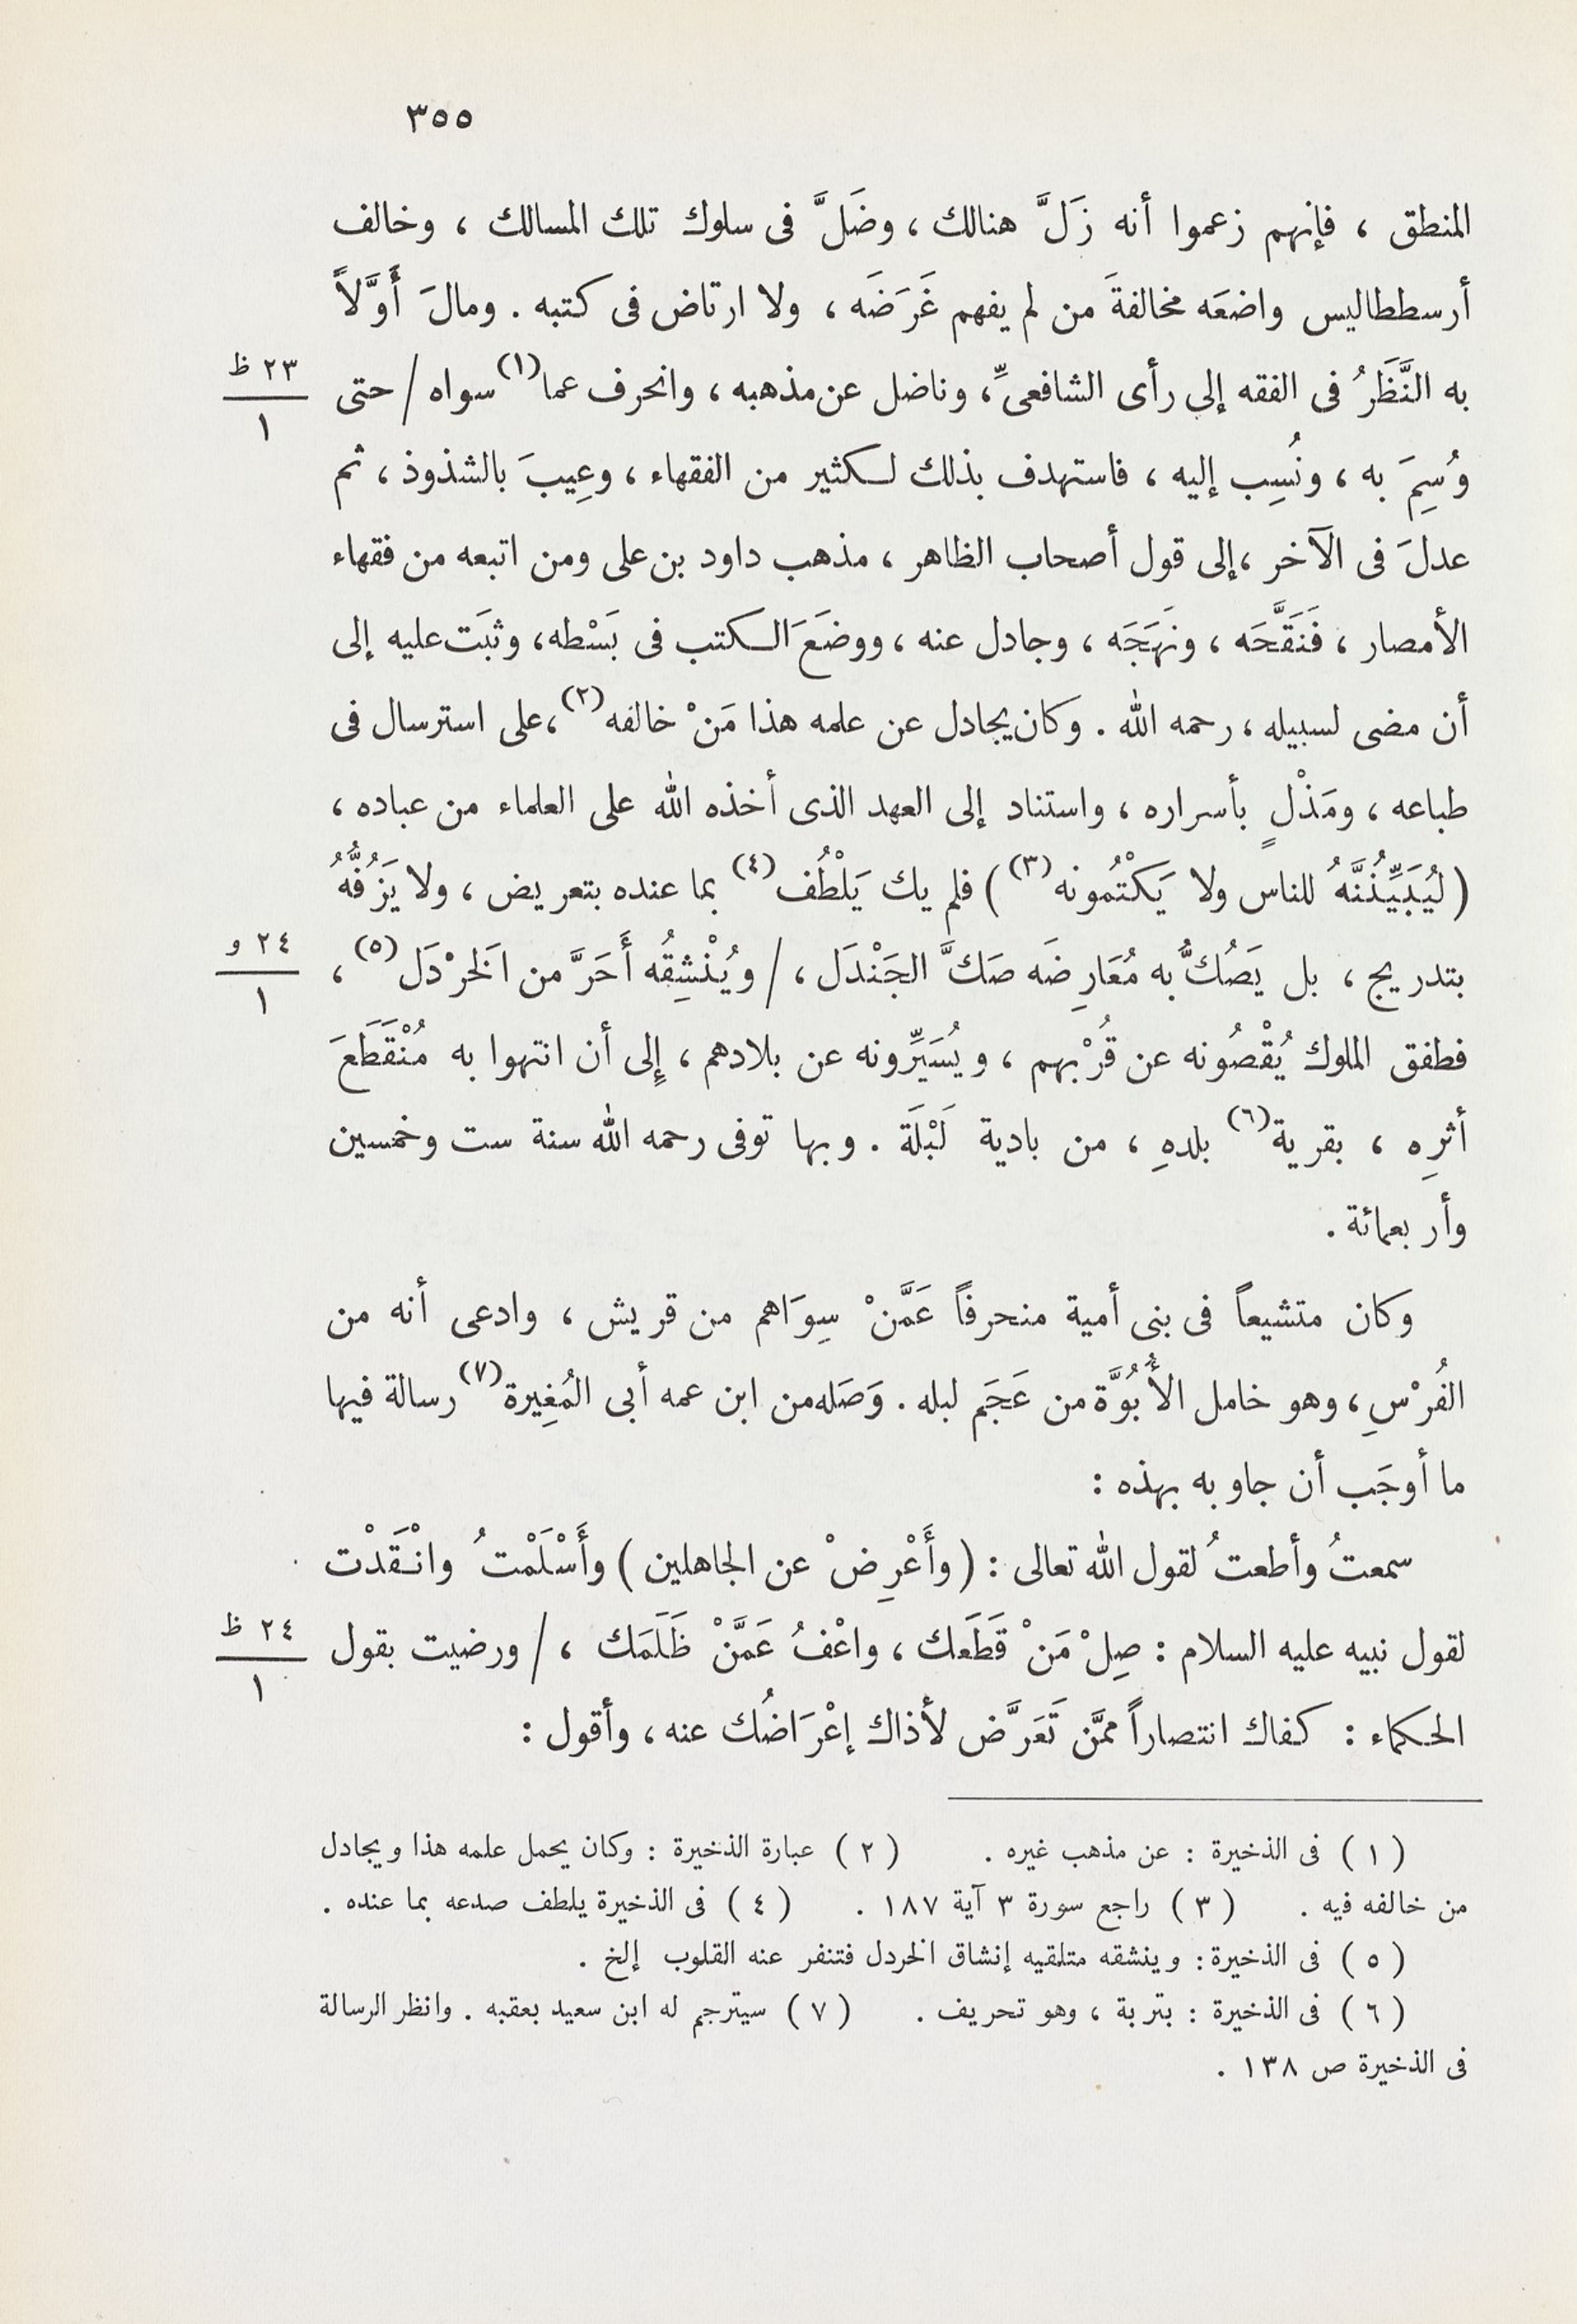 ٣٥٥
المنطق ، فإنهم زعموا أنه زَلَّ هنالك ، وضَلَّ فى سلوك تلك المسالك ، وخالف
أرسططاليس واضعَه مخالفةَ من لم يفهم غَرَضَه ، ولا ارتاض فى كتبه . ومالَ أَوَّلاً
به النَّظَرُ فى الفقه إلى رأى الشافعىِّ، وناضل عن مذهبه ، وانحرف عما(١) سواه / حتى ٢٣ ظ / ١
وُسِمَ به ، ونُسِب إليه ، فاستهدف بذلك لكثير من الفقهاء ، وعِيبَ بالشذوذ ، ثم
عدلَ فى الآخر ، إلى قول أصحاب الظاهر ، مذهب داود بن على ومن اتبعه من فقهاء
الأمصار ، فَنَقَّحَه ، ونهَجَه ، وجادل عنه ، ووضَعَ الكتب فى بَسْطه، وثبَت عليه إلى
أن مضى لسبيله ، رحمه الله . وكان يجادل عن علمه هذا مَنْ خالفه(٢)، على استرسال فى
طباعه ، ومَذْلٍ بأسراره ، واستناد إلى العهد الذى أخذه الله على العلماء من عباده ،
( ليُبَيِّنُنَّهُ للناس ولا يَكْتُمونه(٣) ) فلم يك يَلْطُف(٤) بما عنده بتعريض ، ولا يَزُفُّهُ
بتدريج ، بل يَصُكُّ به مُعَارِضَه صَكَّ الجَنْدَل ، / ويُنْشِقُه أَحَرَّ من الخَرْدَل(٥) ، ٢٤ و / ١
فطفق الملوك يُقْصُونه عن قُرْبهم ، ويُسَيِّرونه عن بلادهم ، إلى أن انتهوا به مُنْقَطَعَ
أثرِه ، بقرية(٦) بلدهِ ، من بادية لَبْلَة . وبها توفى رحمه الله سنة ست وخمسين
وأربعمائة .
وكان متشيعاً فى بنى أمية منحرفاً عَمَّنْ سِوَاهم من قريش ، وادعى أنه من
الفُرْسِ ، وهو خامل الأُبُوَّة من عَجَم لبله . وَصَله من ابن عمه أبى المُغِيرة(٧) رسالة فيها
ما أوجَب أن جاوبه بهذه :
سمعتُ وأطعتُ لقول الله تعالى : ( وأَعْرِضْ عن الجاهلين ) وأَسْلَمْتُ وانْقَدْت
لقول نبيه عليه السلام : صِلْ مَنْ قَطَعك ، واعْفُ عَمَّنْ ظَلَمَك ، / ورضيت بقول ٢٤ ظ / ١
الحكماء : كفاك انتصاراً ممَّن تَعَرَّض لأذاك إعْرَاضُك عنه ، وأقول :
( ١ ) فى الذخيرة : عن مذهب غيره . ( ٢ ) عبارة الذخيرة : وكان يحمل علمه هذا ويجادل
من خالفه فيه . ( ٣ ) راجع سورة ٣ آية ١٨٧ . ( ٤ ) فى الذخيرة يلطف صدعه بما عنده .
( ٥ ) فى الذخيرة : وينشقه متلقيه إنشاق الخردل فتنفر عنه القلوب إلخ .
( ٦ ) فى الذخيرة : بتربة ، وهو تحريف . ( ٧ ) سيترجم له ابن سعيد بعقبه . وانظر الرسالة
فى الذخيرة ص ١٣٨ .